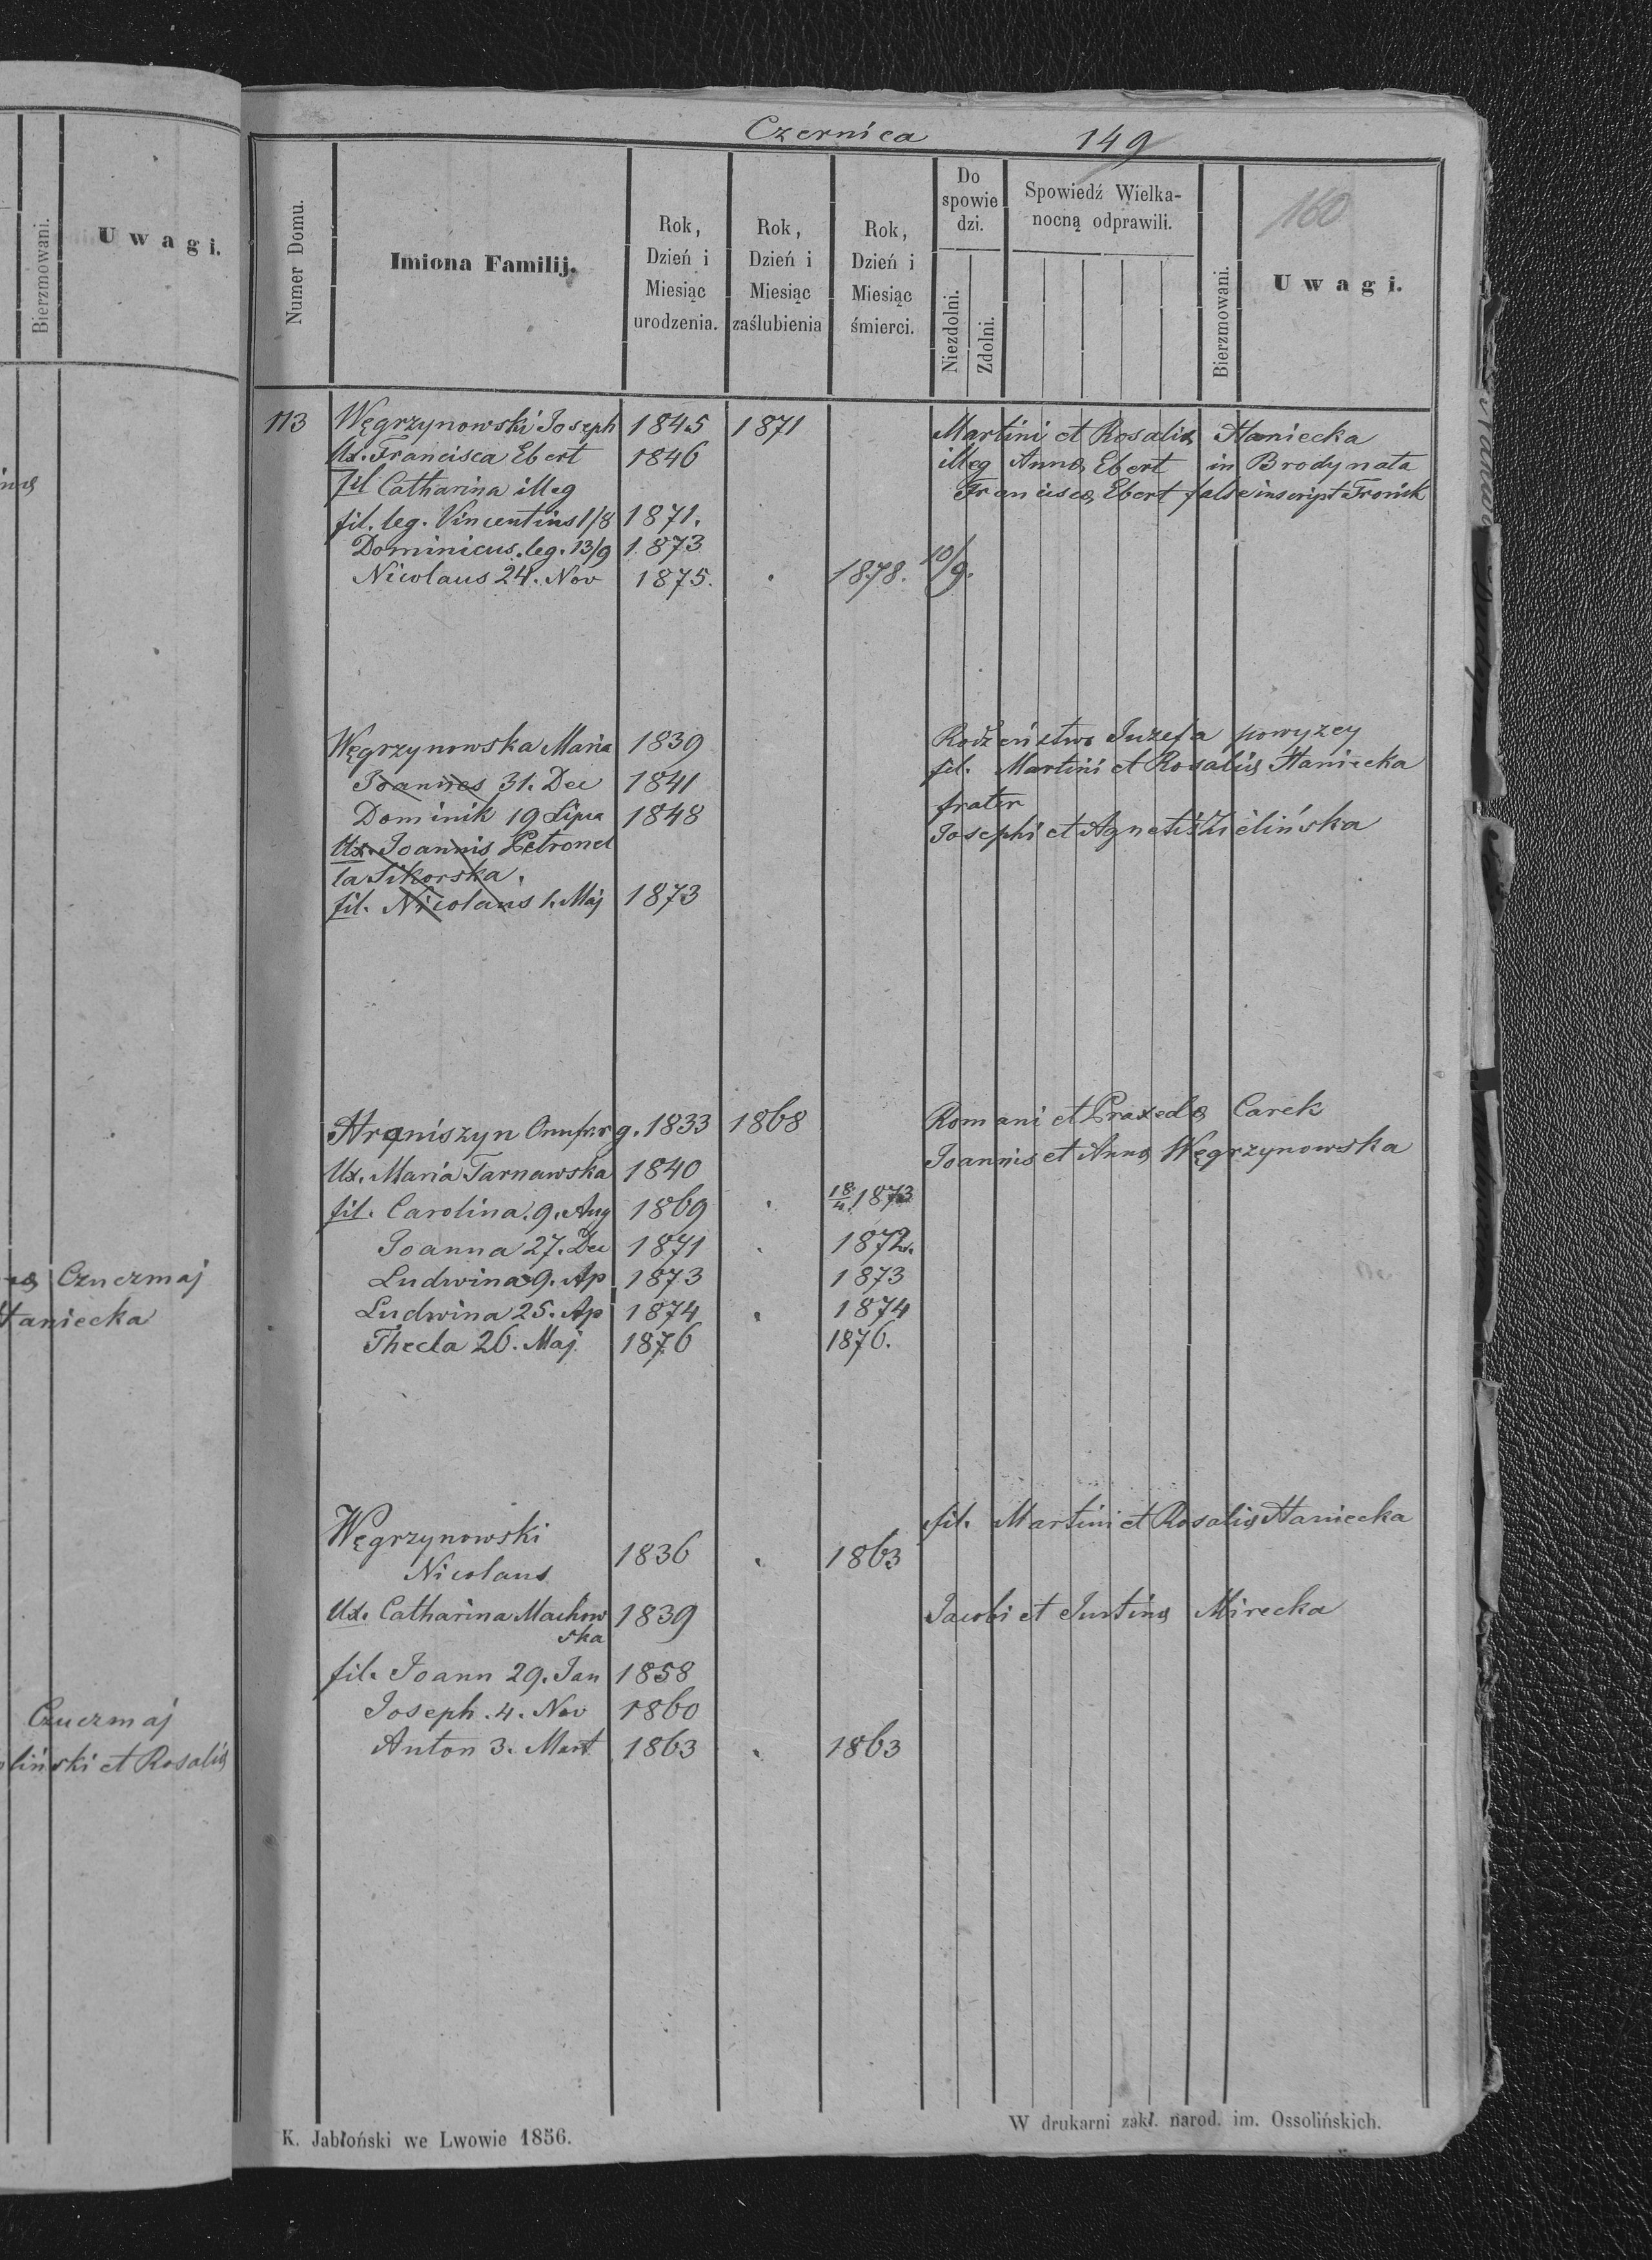 Bierzmowani.
Uwagi.
Czuczmaj
Haniecka
Czuczmaj
liński et Rosaliæ
Czernica 149
160
Numer Domu.
Imiona Familij.
Rok, Dzień i Miesiąc urodzenia.
Rok, Dzień i Miesiąc zaślubienia
Rok, Dzień i Miesiąc śmierci.
Do spowiedzi.
Niezdolni.
Zdolni.
Spowiedź Wielkanocną odprawili.
Bierzmowani.
Uwagi.
113 Węgrzynowski Joseph 1845 1871 Martini et Rosaliæ Haniecka
Ux. Francisca Ebert 1846 illeg Annæ Ebert in Brody nata
Fil Catharina illeg Franciscæ Ebert false inscript
fil. leg. Vincentius 1/8 1871.
Dominicus. leg. 13/9 1873
Nicolaus 24. Nov 1875. 1878. 10/9.
Węgrzynowska Maria 1839 Rodzeństwo Juzefa powyzey
Joannes 31. Dec 1841 fil. Martini et Rosaliæ Haniecka
Dominik 19 Lipca 1848 frater
Ux. Joannis Petronel Josephi et Agnetis Zielińska
la Sikorska.
fil. Nicolaus 1. Maj 1873
Hraniszyn Onufr g. 1833 1868 Romani et Praxedæ Carek
Ux. Maria Tarnawska 1840 Joannis et Annæ Węgrzynowska
fil. Carolina. 9. Aug 1869 18/4 1873
Joanna 27. Dec 1871 1872.
Ludwina 9. Ap 1873 1873
Ludwina 25. Ap 1874 1874
Thecla 26. Maj. 1876 1876.
Węgrzynowski fil. Martini et Rosaliæ Haniecka
Nicolaus 1836 1863
Ux. Catharina Machow 1839 Jacobi et Justinæ Mirecka
ska
fil. Joann 29. Jan 1858
Joseph. 4. Nov 1860
Anton 3. Mart 1863 1863
K. Jabłoński we Lwowie 1856.
W drukarni zakł. narod. im. Ossolińskich.